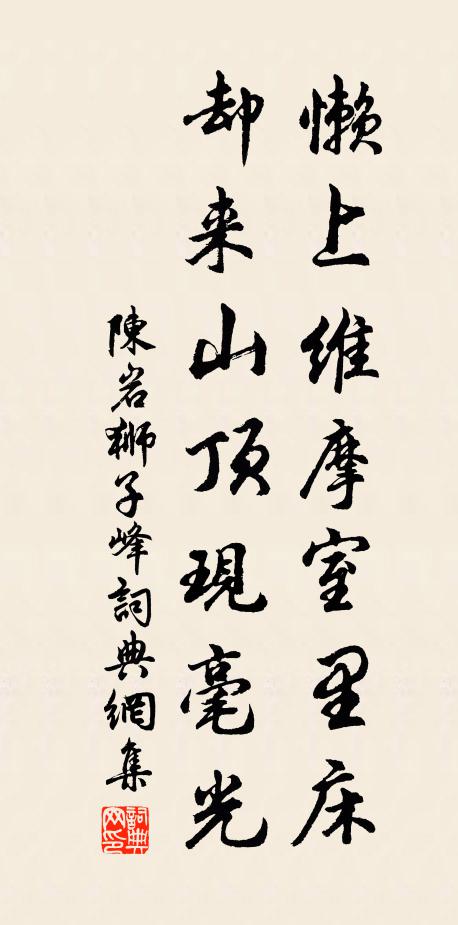 懒上维摩室里床
却来山顶现毫光
陳岩狮子峰詞典網集
詞典网印